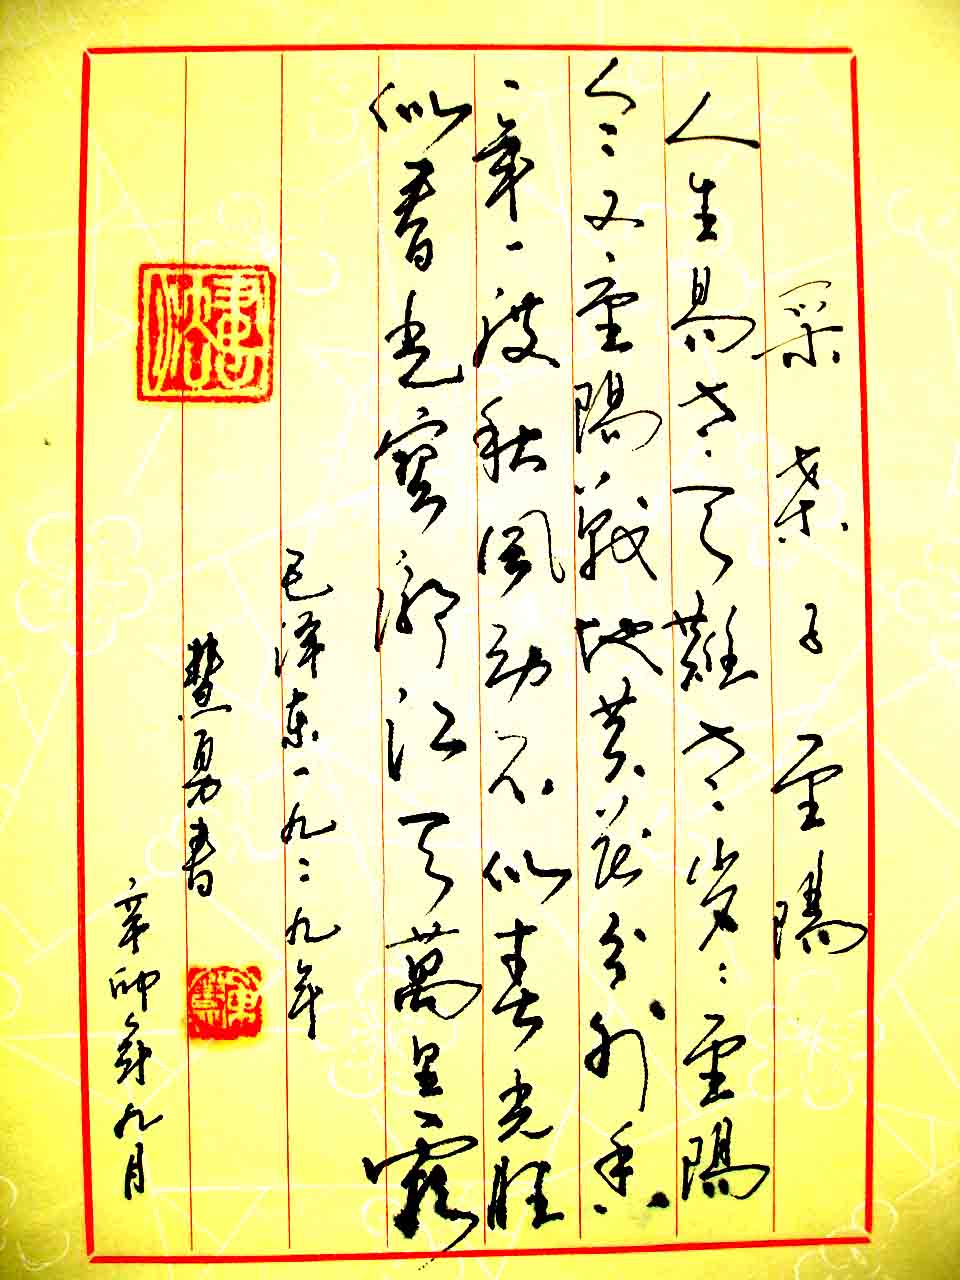 采桑子重陽
人生易老天難老歲歲重陽
今又重陽戰地黃花分外香
一年一度秋風勁不似春光勝
似春光寥廓江天萬里霜
毛澤東一九二九年
慧勇書
辛卯年九月
書法